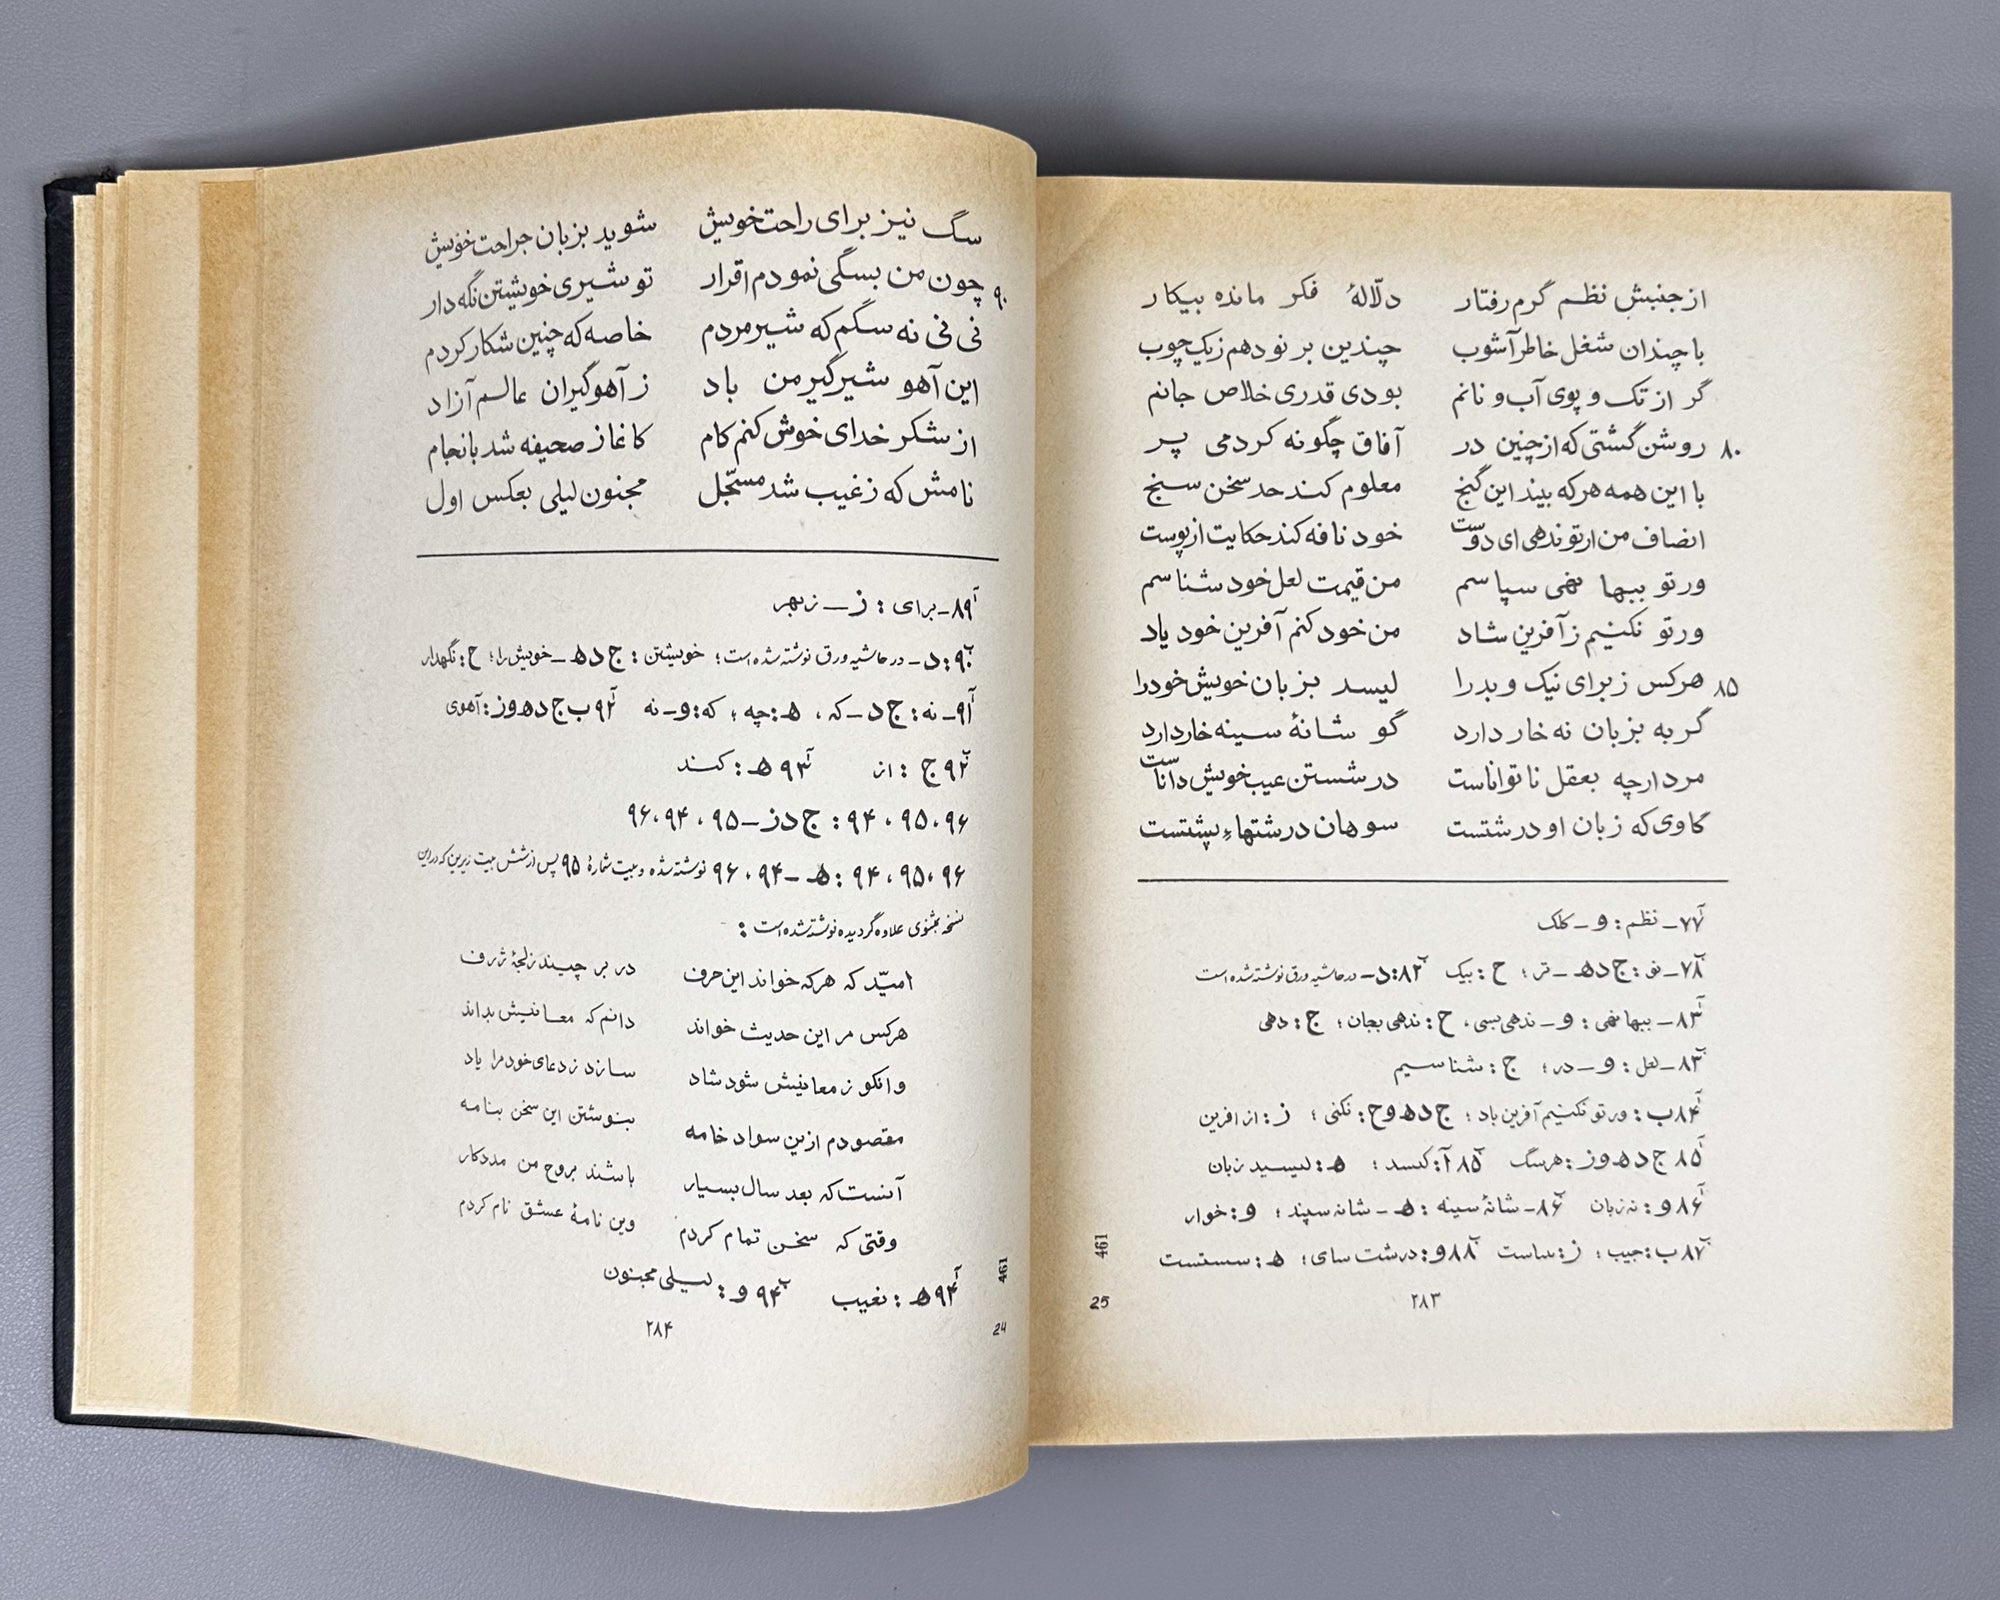 از جنبش نظم گرم رفتار دلّالهٔ فکر مانده بیکار
با چندان شغل خاطر آشوب چندین بر نو دهم زیک چوب
گر از تک و پوی آب و نانم بودی قدری خلاص جانم
۸۰ روشن گشتی که از چنین در آفاق چگونه کردمی پر
با این همه هر که بیند این گنج معلوم کند حد سخن سنج
انصاف من ار تو ندهی ای دوست خود نافه کند حکایت از پوست
ور تو ببها نهی سپاسم من قیمت لعل خود شناسم
ور تو نکنیم ز آفرین شاد من خود کنم آفرین خود یاد
۸۵ هرکس ز برای نیک و بد را لیسد بزبان خویش خود را
گر به بزبان نه خار دارد گو شانهٔ سینه خار دارد
مرد ارچه بعقل ناتواناست در شستن عیب خویش داناست
گاوی که زبان او درشتست سوهان درشتهاءِ پشتست
۷۷آ_ نظم : و_ کلک
۷۸ب_ نو : ج د ه_ تر ؛ ح : بیک ۸۲ب : د_ در حاشیه ورق نوشته شده است
۸۳آ_ ببها نهی : و_ ندهی بسی، ح : ندهی بجان ؛ ج : دهی
۸۳ب_ لعل : و_ در ؛ ج : شناسیم
۸۴آب : ور تو نکنیم آفرین یاد ؛ ج د ه و ح : نکنی ؛ ز : از افرین
۸۵آ ج د ه و ز : هر سگ ۸۵ب آ : کیسد ؛ ه : لیسید زبان
۸۶آ و : نه زبان ۸۶ب_ شانهٔ سینه : ه_ شانه سپند ؛ و : خوار
۸۷ب ب : جیب ؛ ز : ساست ۸۸ب و : درشت سای ؛ ه : سستست
۲۸۳
461
25
سگ نیز برای راحت خویش شوید بزبان جراحت خویش
۹۰ چون من بسگی نمودم اقرار تو شیری خویشتن نگه دار
نی نی نه سگم که شیر مردم خاصه که چنین شکار کردم
این آهو شیر گیر من باد ز آهو گیران عالم آزاد
از شکر خدای خوش کنم کام کاغاز صحیفه شد بانجام
نامش که ز غیب شد مسجّل مجنون لیلی بعکس اول
۸۹آ_ برای : ز_ ز بهر
۹۰ب : د_ در حاشیه ورق نوشته شده است ؛ خویشتن : ج د ه_ خویش را ؛ ح : نگهدار
۹۱آ_ نه : ج د_ که ، ه : چه ؛ که : و_ نه ۹۲آ ب ج د ه و ز : آهوی
۹۲ب ج : از ۹۳آ ه : کند
۹۶،۹۵،۹۴ : ج د ز_ ۹۵،۹۴،۹۶
۹۶،۹۵،۹۴ : ه_ ۹۴،۹۶ نوشته شده و بیت شمارهٔ ۹۵ پس از شش بیت زیرین که در این
نسخه بمثنوی علاوه گردیده نوشته شده است :
امیّد که هر که خواند این حرف در بر چیند ز لجهٔ ژرف
هر کس مر این حدیث خواند دانم که معانیش بداند
وانکو ز معانیش شود شاد سازد ز دعای خود مرا یاد
مقصودم ازین سواد خامه بنوشتن این سخن بنامه
آنست که بعد سال بسیار باشند بروح من مددکار
وقتی که سخن تمام کردم وین نامهٔ عشق نام کردم
۹۴آ ه : بغیب ۹۴ب و : لیلی مجنون
۲۸۴
461
24